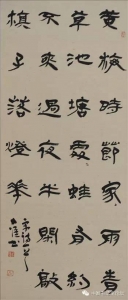 黄梅時節家雨青
草池塘處蛙有約
不來過夜半閒敲
棋子落燈花